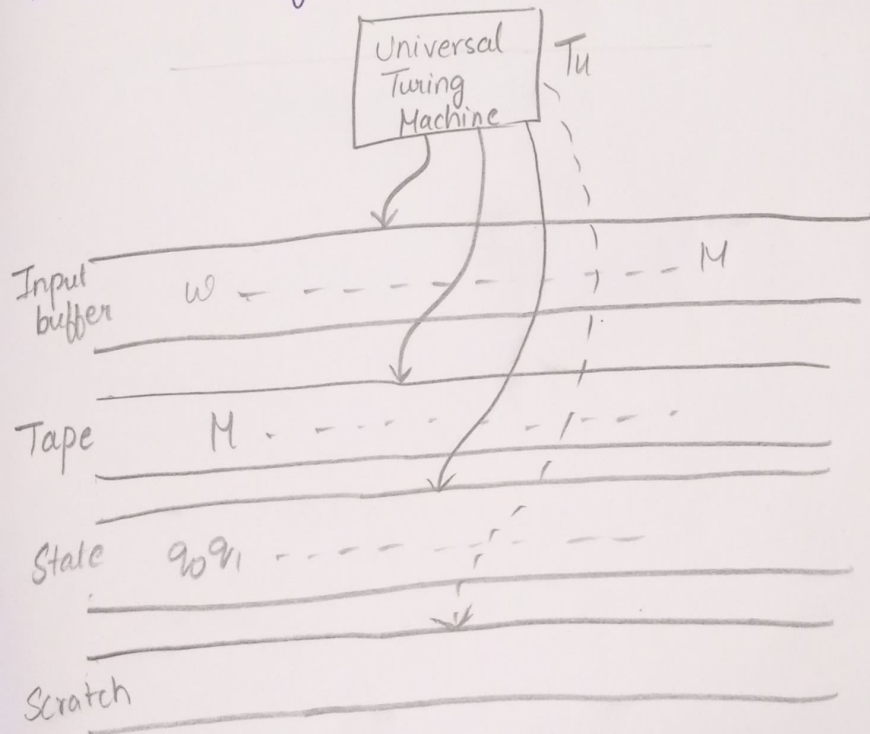 Universal
Turing
Machine
Tu
Input
buffer
w - - - - - - - - M
Tape
M . - - . - . - - - .
State
q₀q₁ - - - - - - -
Scratch